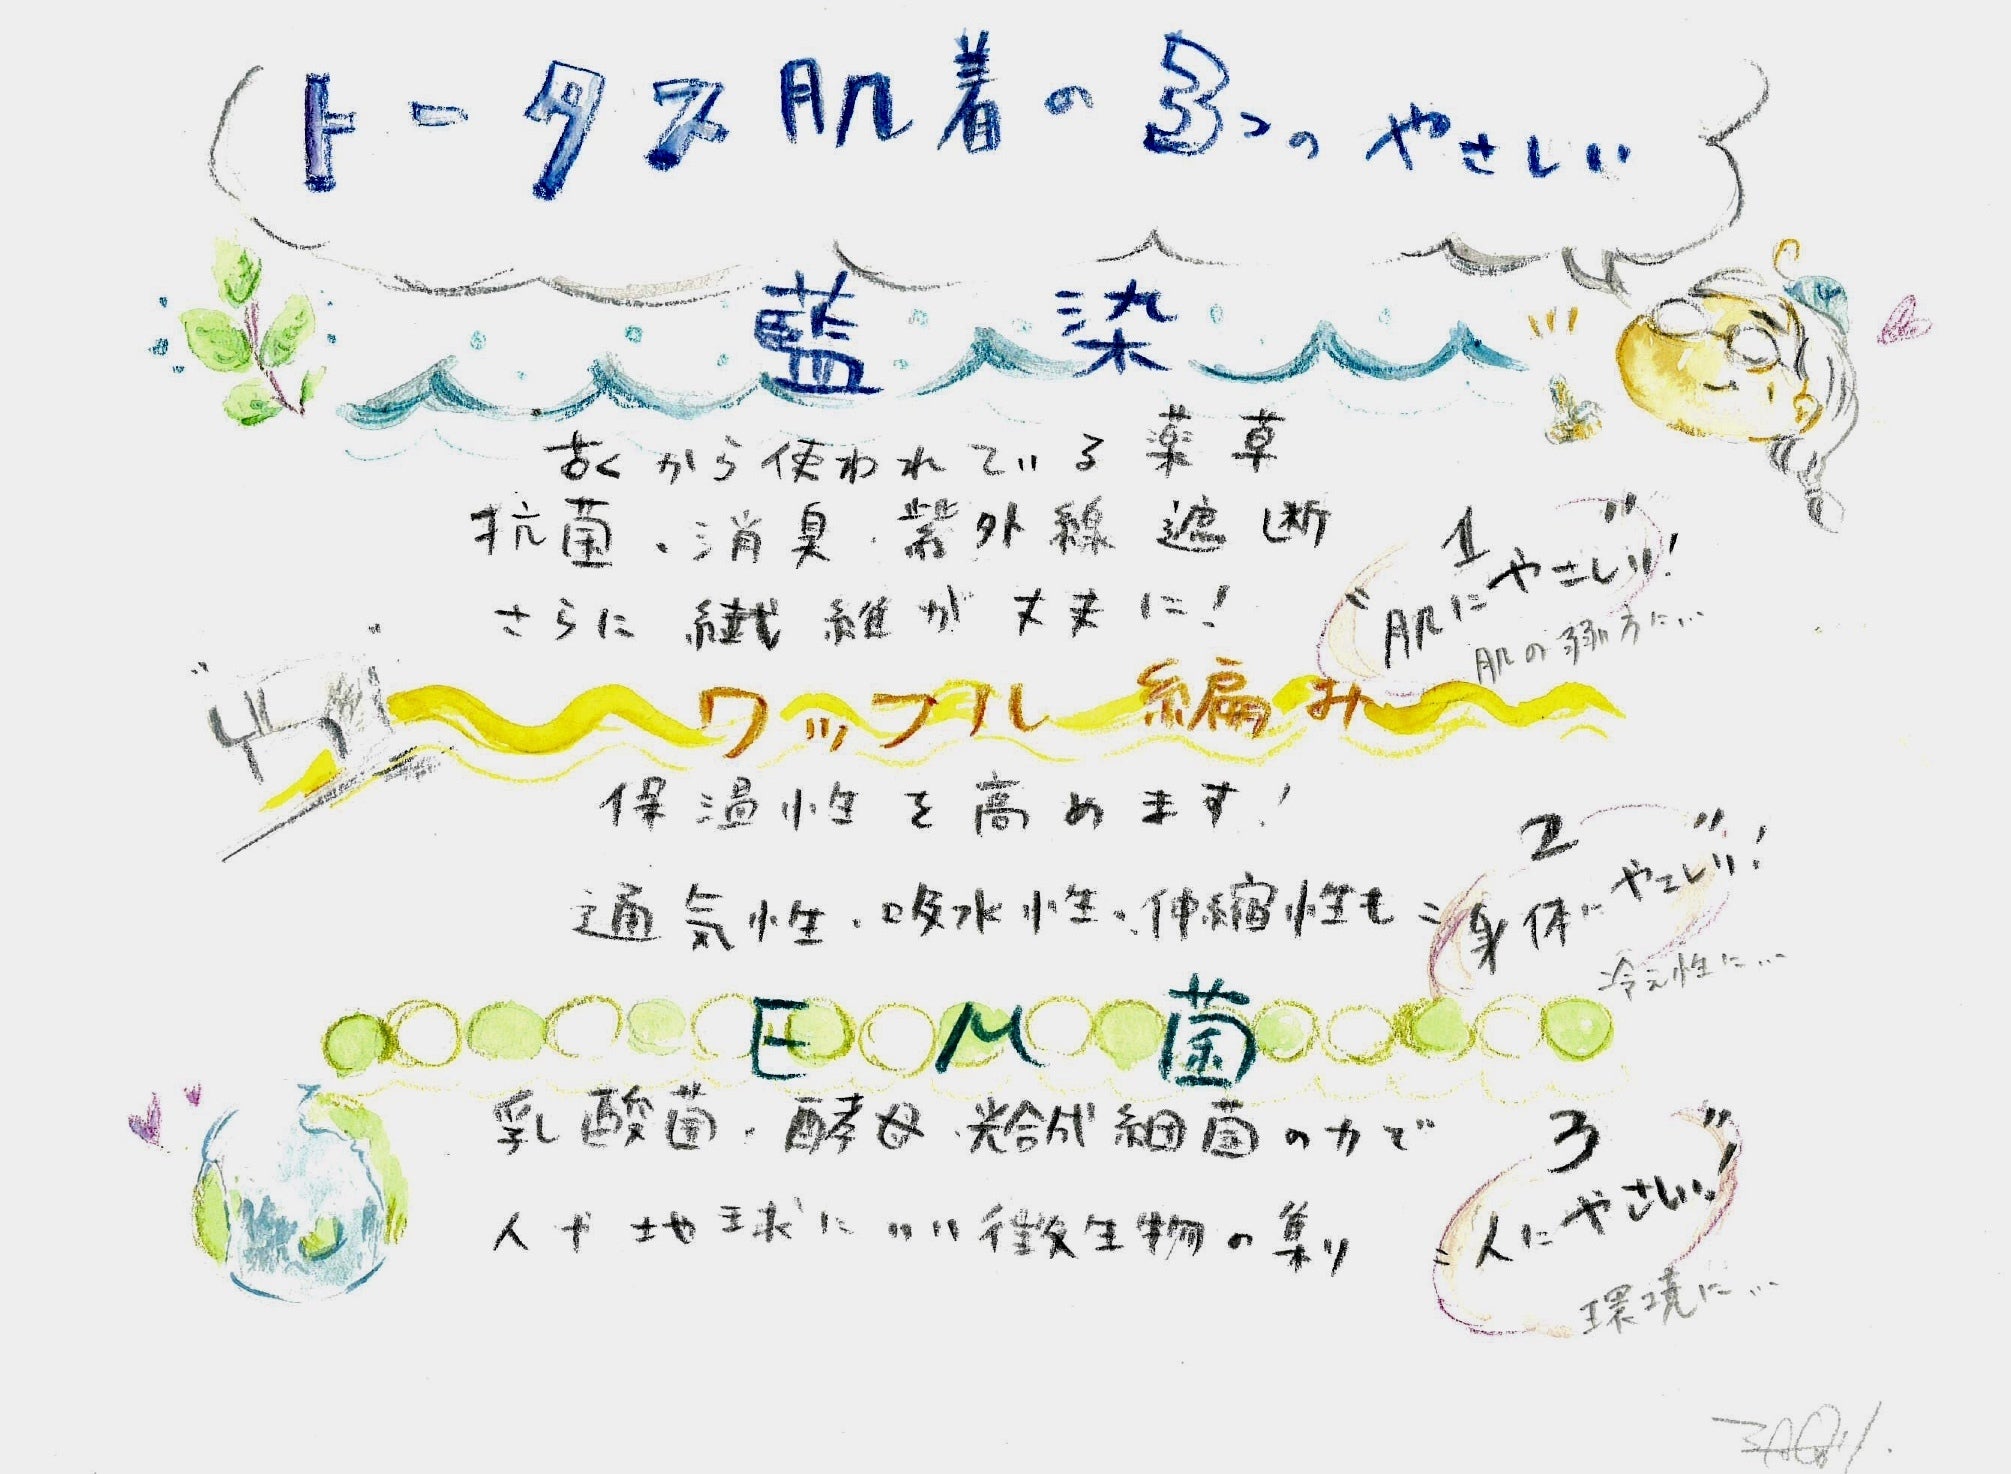 トータス肌着の3つのやさしい
藍染
古くから使われている薬草
抗菌・消臭・紫外線遮断
さらに繊維が丈夫に!
1
"肌にやさしい"!
肌の弱い方に…
ワッフル編み
保温性を高めます!
通気性・吸水性・伸縮性も
2
"身体にやさしい"!
冷え性に…
EM菌
乳酸菌・酵母・光合成細菌の力で
人や地球にいい微生物の集り
3
"人にやさしい"!
環境に…